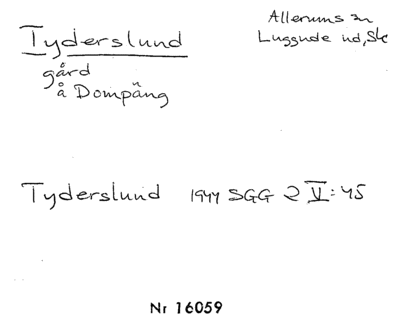 Tyderslund
Allerums sn
Luggude hd, Sk
gård
å Dompäng
Tyderslund 1944 SGG 2 V:45
Nr 16059